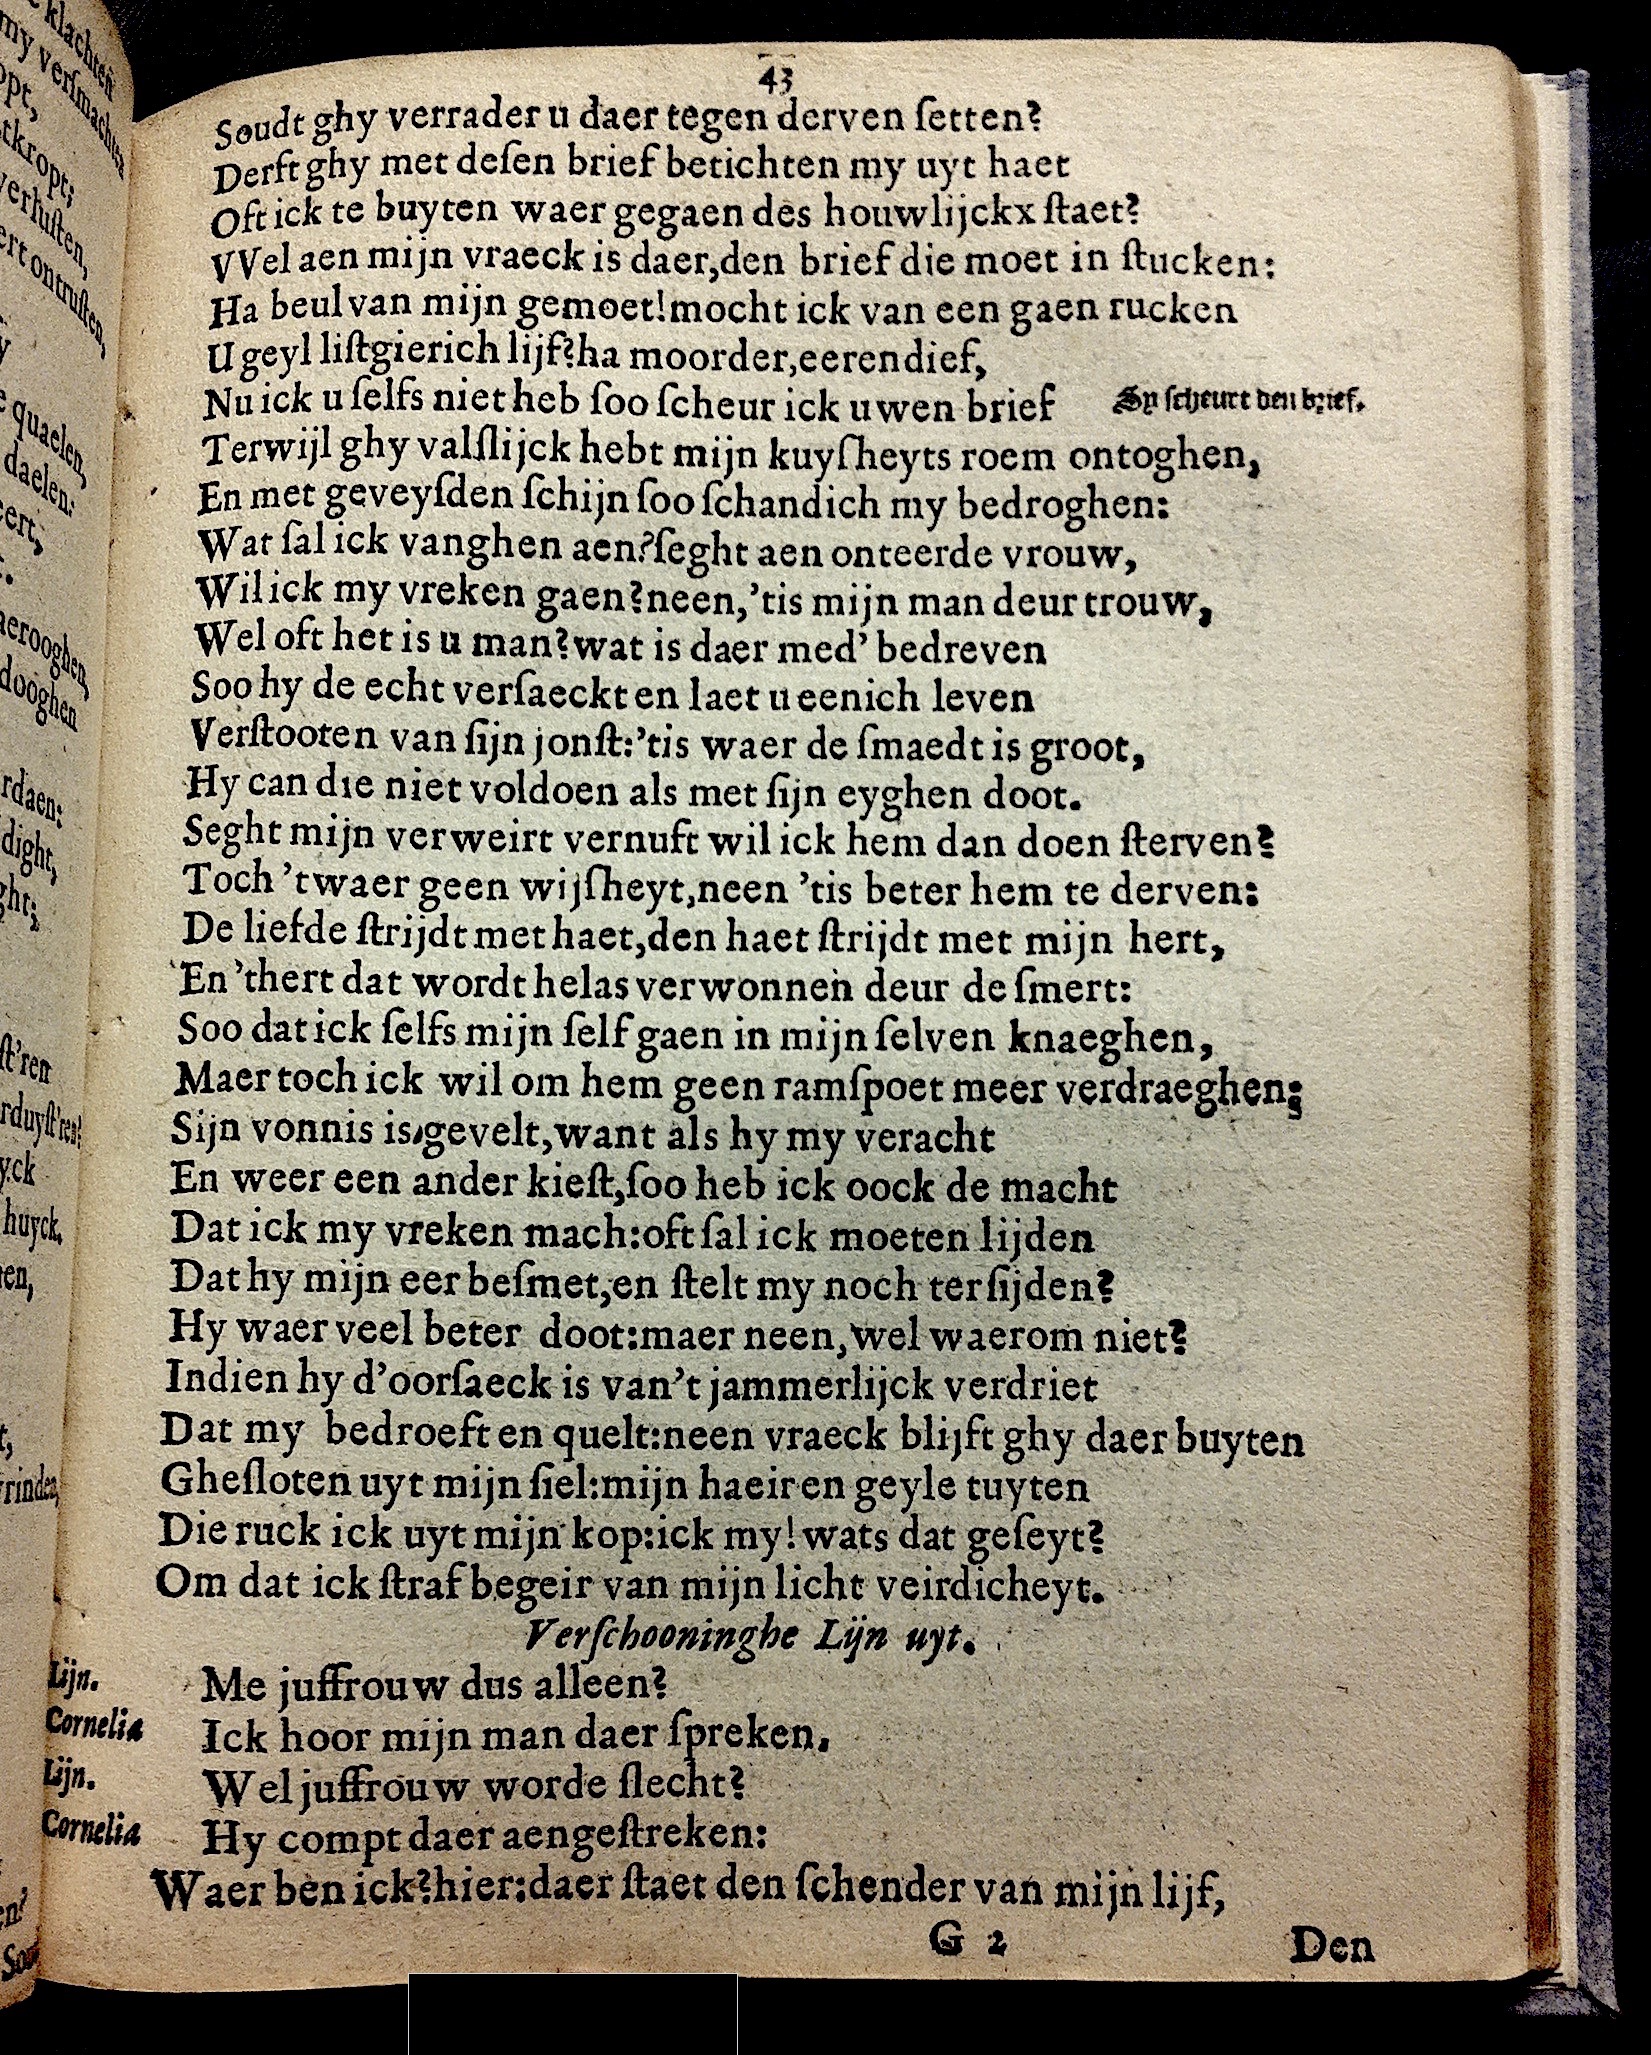 43
Soudt ghy verrader u daer tegen derven ſetten?
Derft ghy met deſen brief betichten my uyt haet
Oft ick te buyten waer gegaen des houwlijckx ſtaet?
VVel aen mijn vraeck is daer,den brief die moet in ſtucken:
Ha beul van mijn gemoet!mocht ick van een gaen rucken
U geyl liſtgierich lijf?ha moorder,eerendief,
Nu ick u ſelfs niet heb ſoo ſcheur ick uwen brief Sy ſcheurt den brief.
Terwijl ghy valſlijck hebt mijn kuyſheyts roem ontoghen,
En met geveyſden ſchijn ſoo ſchandich my bedroghen:
Wat ſal ick vanghen aen?ſeght aen onteerde vrouw,
Wil ick my vreken gaen?neen,'tis mijn man deur trouw,
Wel oft het is u man?wat is daer med' bedreven
Soo hy de echt verſaeckt en laet u eenich leven
Verſtooten van ſijn jonſt:'tis waer de ſmaedt is groot,
Hy can die niet voldoen als met ſijn eyghen doot.
Seght mijn verweirt vernuft wil ick hem dan doen ſterven?
Toch 'twaer geen wijſheyt,neen 'tis beter hem te derven:
De liefde ſtrijdt met haet,den haet ſtrijdt met mijn hert,
En 'thert dat wordt helas verwonnen deur de ſmert:
Soo dat ick ſelfs mijn ſelf gaen in mijn ſelven knaeghen,
Maer toch ick wil om hem geen ramſpoet meer verdraeghen;
Sijn vonnis is,gevelt,want als hy my veracht
En weer een ander kieſt,ſoo heb ick oock de macht
Dat ick my vreken mach:oft ſal ick moeten lijden
Dat hy mijn eer beſmet,en ſtelt my noch ter ſijden?
Hy waer veel beter doot:maer neen,wel waerom niet?
Indien hy d'oorſaeck is van't jammerlijck verdriet
Dat my bedroeft en quelt:neen vraeck blijft ghy daer buyten
Gheſloten uyt mijn ſiel:mijn haeir en geyle tuyten
Die ruck ick uyt mijn kop:ick my! wats dat geſeyt?
Om dat ick ſtraf begeir van mijn licht veirdicheyt.
Verſchooninghe Lijn uyt.
Lijn. Me juffrouw dus alleen?
Cornelia Ick hoor mijn man daer ſpreken.
Lijn. Wel juffrouw worde ſlecht?
Cornelia Hy compt daer aengeſtreken:
Waer ben ick?hier:daer ſtaet den ſchender van mijn lijf,
G 2 Den